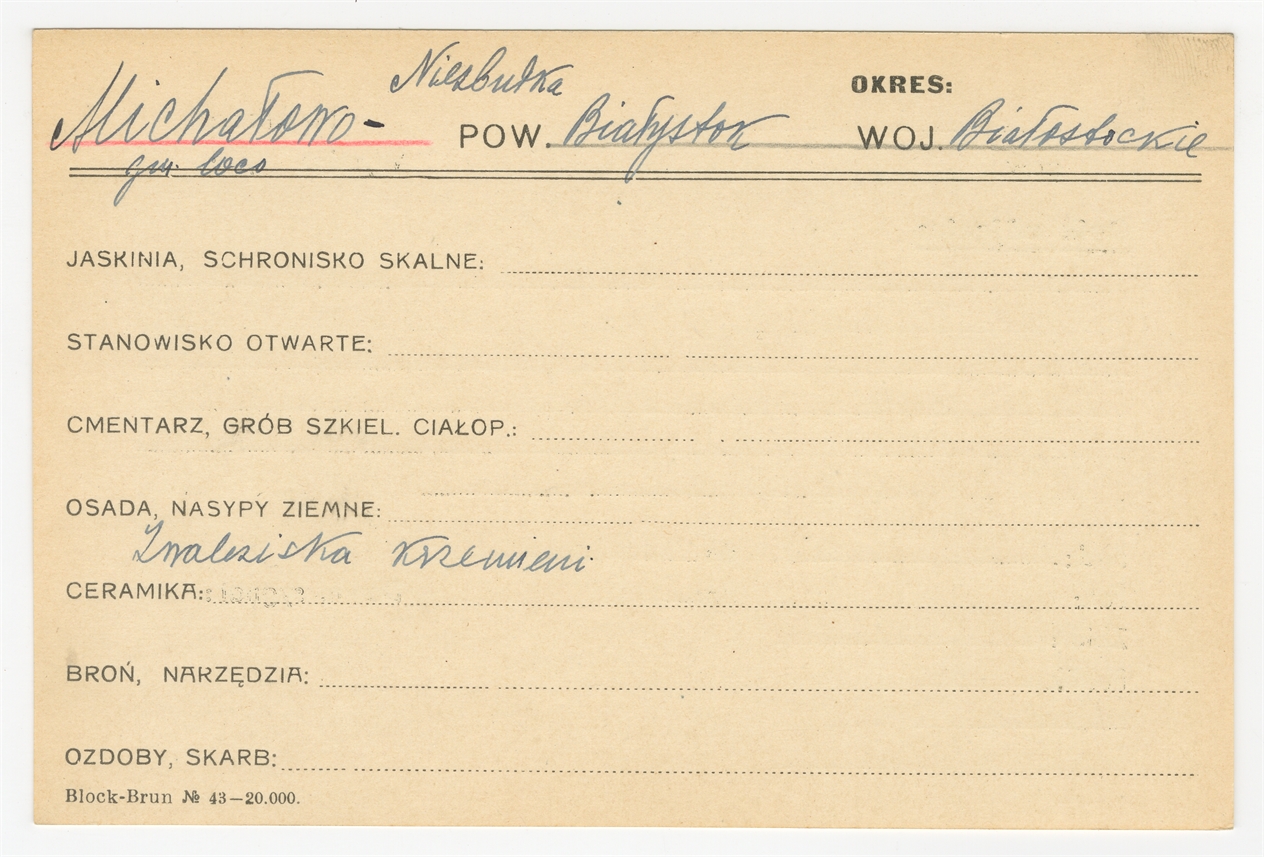 Niezbudka
OKRES:
Michałowo- POW. Białystok WOJ. Białostockie
gm. loco
JASKINIA, SCHRONISKO SKALNE:
STANOWISKO OTWARTE:
CMENTARZ, GRÓB SZKIEL. CIAŁOP.:
OSADA, NASYPY ZIEMNE:
Znaleziska krzemieni
CERAMIKA:
BROŃ, NARZĘDZIA:
OZDOBY, SKARB:
Block-Brun № 43—20.000.